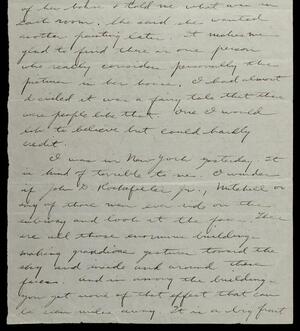 of her house & told me what was in
each room. She said she wanted
another painting later. It makes me
glad to find there is one person
who really considers personally the
pictures in her house. I had almost
decided it was a fairy tale that there
were people like that. One I would
like to believe but could hardly
credit.
I was in New York yesterday. It
is kind of terrible to me. I wonder
if John D Rockefeller Jr., Mitchell or
any of those men ever ride on the
subway and look at the faces. There
are all those enormous buildings
making grandiose gestures toward the
sky and inside and around these
faces. and in among the buildings
you get none of that effect that can
be seen miles away. It is a big front